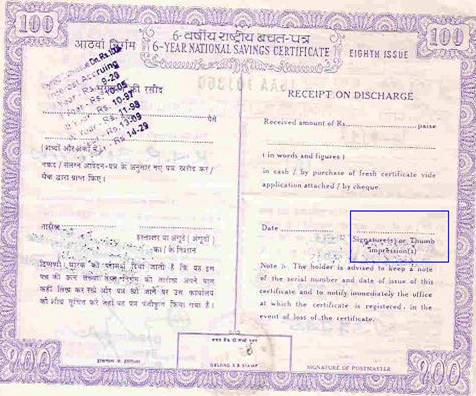 100
100
6-वर्षीय राष्ट्रीय बचत-पत्र
आठवां निर्गम
6-YEAR NATIONAL SAVINGS CERTIFICATE
EIGHTH ISSUE
Accruing
9-20
10-05
10-97
11-98
13-09
Rs. 14-29
की रसीद
RECEIPT ON DISCHARGE
Received amount of Rs. paise
पैसे
(शब्दों और अंकों में)
(in words and figures)
नकद / संलग्न आवेदन-पत्र के अनुसार नए पत्र खरीद कर /
चैक द्वारा प्राप्त किए।
in cash / by purchase of fresh certificate vide
application attached / by cheque.
तारीख
Date
हस्ताक्षर या अंगूठे (अंगूठों)
का / के निशान
Signature(s) or Thumb
impression(s)
टिप्पणी: धारक को परामर्श दिया जाता है कि वह इस
पत्र की क्रम संख्या
कहीं लिख कर रखे और पत्र खो जाने पर उस कार्यालय
को शीघ्र सूचित करे जहाँ वह पत्र पंजीकृत किया गया है।
Note :- The holder is advised to keep a note
of the serial number and date of issue of this
certificate and to notify immediately the office
at which the certificate is registered, in the
event of loss of the certificate.
100
100
SIGNATURE OF POSTMASTER